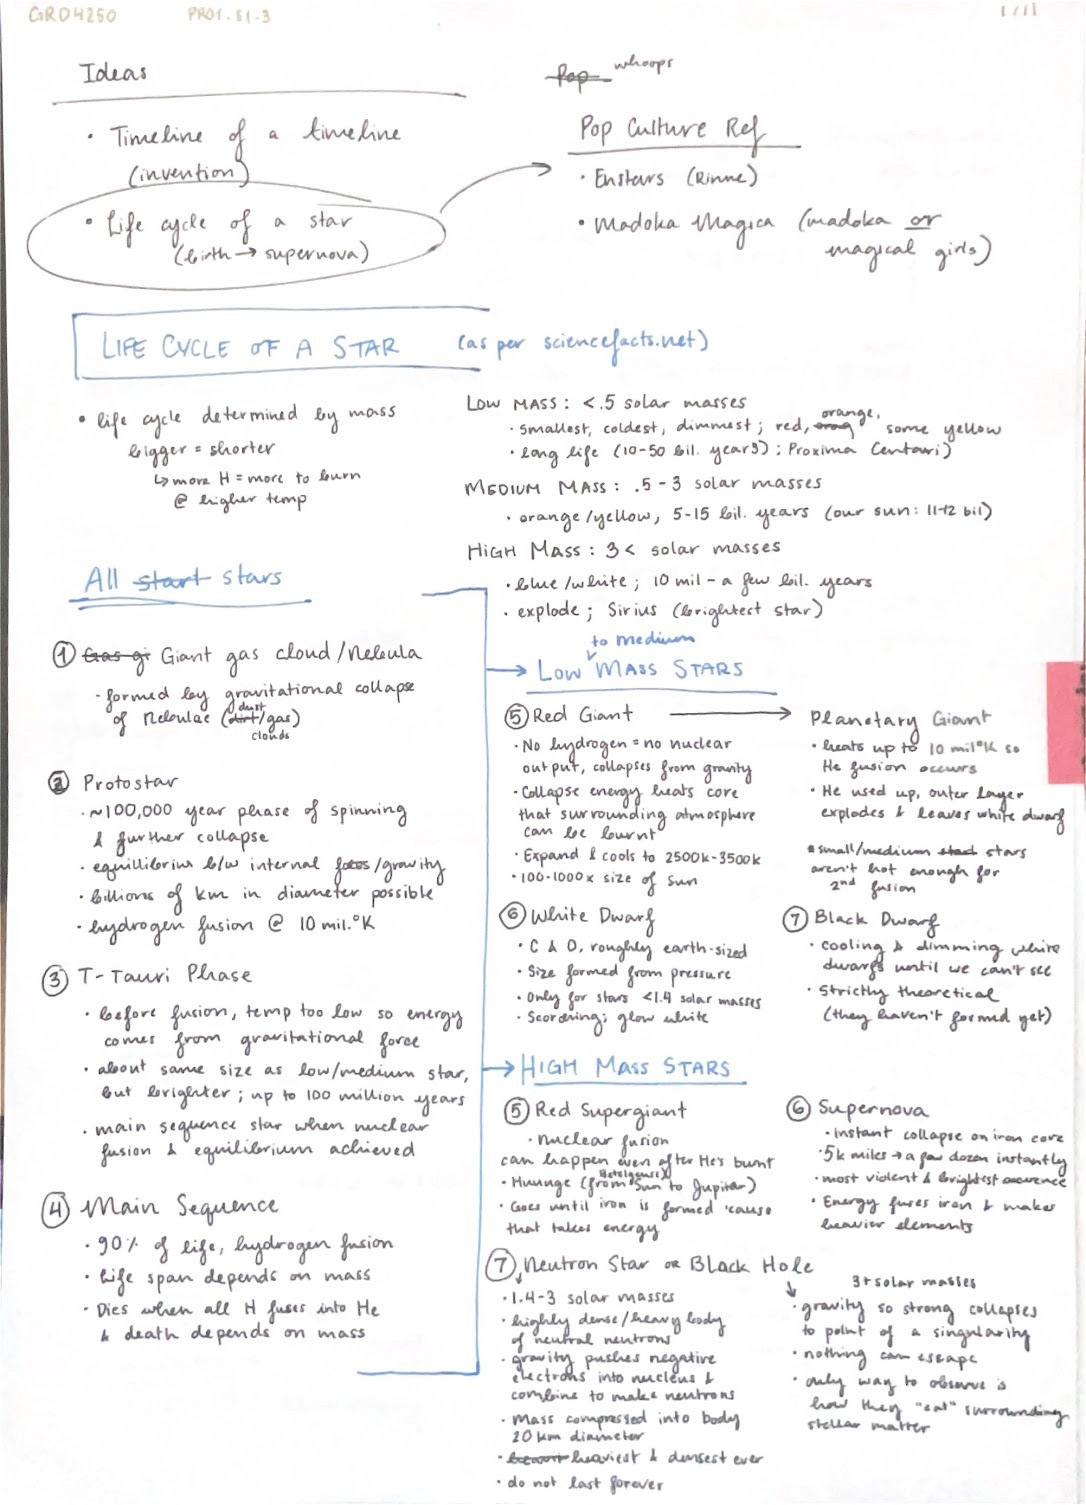 GRD4250
PR01.S1-3
1/11
Ideas
• Timeline of a timeline
(invention)
• Life cycle of a star
(birth → supernova)
Pop whoops
Pop Culture Ref
• Enstars (Rinne)
• Madoka Magica (madoka or
magical girls)
LIFE CYCLE OF A STAR (as per sciencefacts.net)
• life cycle determined by mass
bigger = shorter
↳ more H = more to burn
@ higher temp
LOW MASS: <.5 solar masses
• smallest, coldest, dimmest; red, orang orange, some yellow
• long life (10-50 bil. years); Proxima Centauri)
MEDIUM MASS: .5-3 solar masses
• orange/yellow, 5-15 bil. years (our sun: 11-12 bil)
HIGH MASS: 3< solar masses
• blue/white; 10 mil - a few bil. years
• explode; Sirius (brightest star)
All start stars
① Gas gi Giant gas cloud/Nebula
- formed by gravitational collapse
of Nebulae (dirt dust/gas)
clouds
② Protostar
• ~100,000 year phase of spinning
& further collapse
• equillibrium b/w internal /gravity
• billions of km in diameter possible
• hydrogen fusion @ 10 mil.°K
③ T-Tauri Phase
• before fusion, temp too low so energy
comes from gravitational force
• about same size as low/medium star,
but brighter; up to 100 million years
• main sequence star when nuclear
fusion & equilibrium achieved
④ Main Sequence
• 90% of life, hydrogen fusion
• life span depends on mass
• Dies when all H fuses into He
& death depends on mass
to medium
→ LOW MASS STARS
⑤ Red Giant →
• No hydrogen = no nuclear
output, collapses from gravity
• Collapse energy heats core
that surrounding atmosphere
can be burnt
• Expand & cools to 2500k-3500k
• 100-1000x size of sun
Planetary Giant
• heats up to 10 mil°K so
He fusion occurs
• He used up, outer layer
explodes & leaves white dwarf
* small/medium stars
aren't hot enough for
2nd fusion
⑥ White Dwarf
• C & O, roughly earth-sized
• Size formed from pressure
• Only for stars <1.4 solar masses
• Scorching; glow white
⑦ Black Dwarf
• cooling & dimming white
dwarfs until we can't see
• Strictly theoretical
(they haven't formed yet)
→ HIGH MASS STARS
⑤ Red Supergiant
• nuclear fusion
can happen even after He's burnt
• Huuuge (from Sun to Jupiter)
• Goes until iron is formed 'cause
that takes energy
⑥ Supernova
• instant collapse on iron core
• 5k miles → a few dozen instantly
• most violent & brightest occurence
• Energy fuses iron & makes
heavier elements
⑦ Neutron Star OR Black Hole
• 1.4-3 solar masses
• highly dense/heavy body
of neutral neutrons
• gravity pushes negative
electrons into nucleus &
combine to make neutrons
• Mass compressed into body
20 km diameter
• heaviest & densest ever
• do not last forever
3+ solar masses
• gravity so strong collapses
to point of a singularity
• nothing can escape
• only way to observe is
how they "eat" surrounding
stellar matter